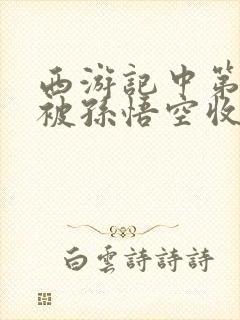 西游記中第
被孫悟空收
白雲詩詩詩